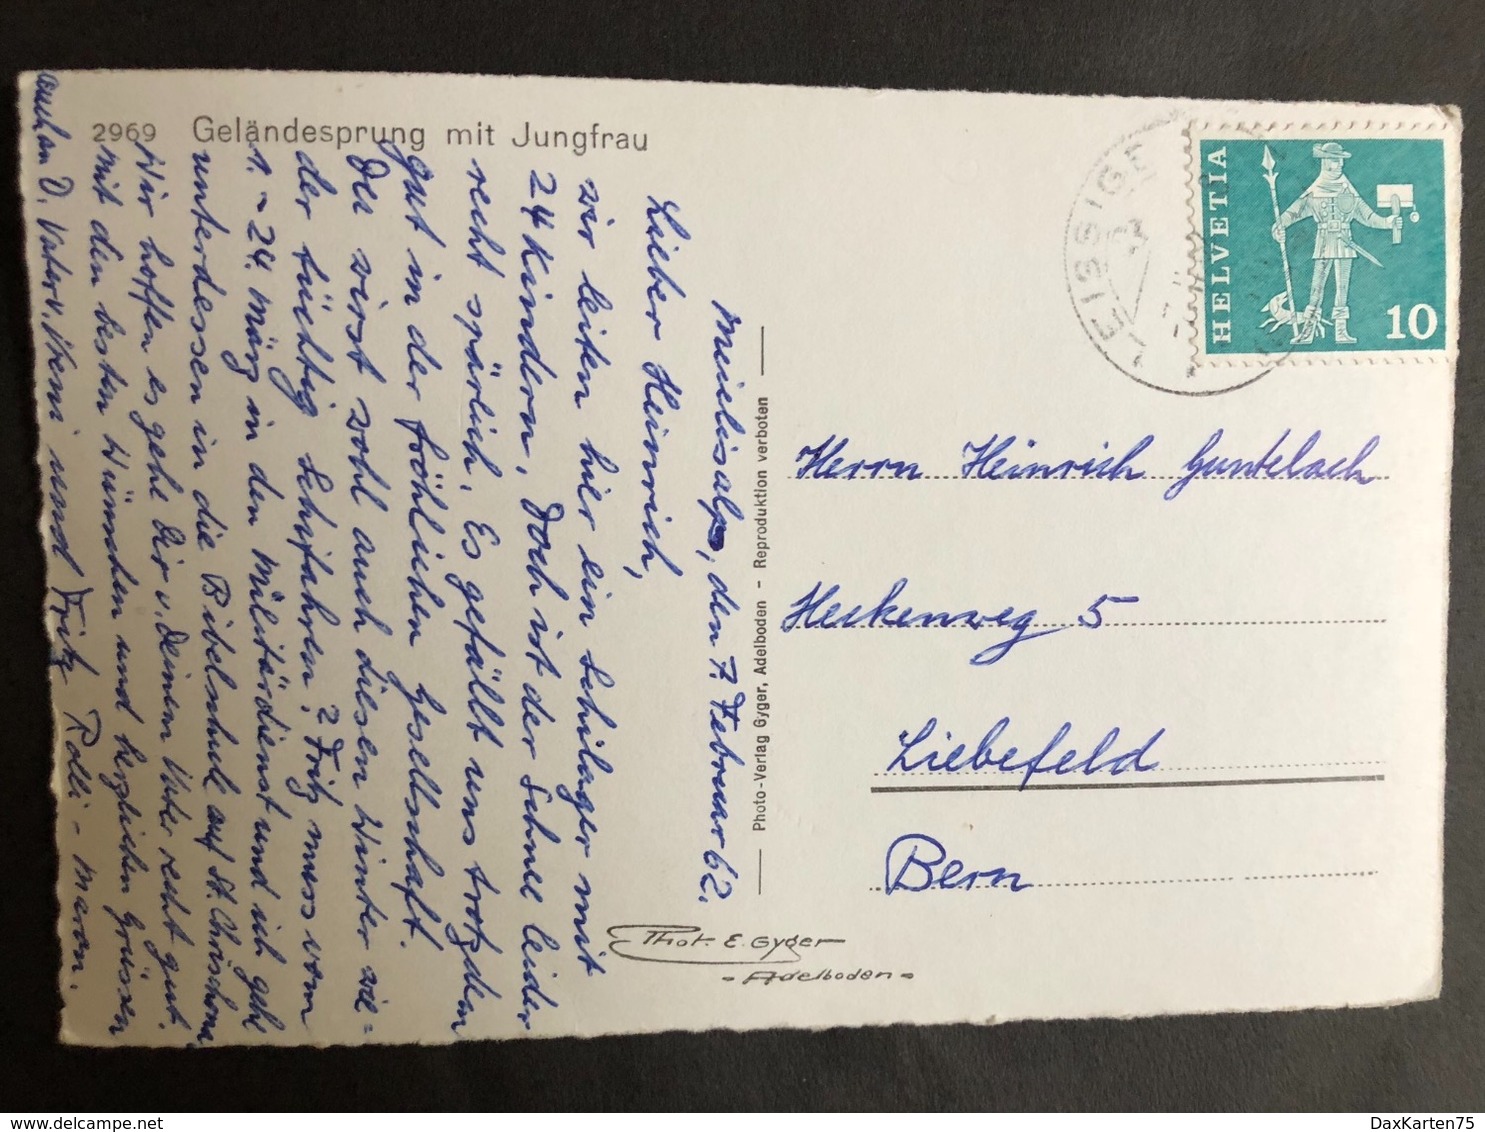 2969 Geländesprung mit Jungfrau
Meielisalp, den 7. Februar 62.
Lieber Heinrich,
wir leiten hier ein Schilager mit
24 Kindern. Doch ist der Schnee leider
recht spärlich. Es gefällt uns trotzdem
gut in der fröhlichen Gesellschaft.
Du wirst wohl auch diesen Winter wie=
der tüchtig Schifahren? Fritz muss vom
1. - 24. März in den Militärdienst und ich gehe
unterdessen in die Bibelschule auf St. Chrischona.
Wir hoffen es gehe Dir u. Deinem Vater recht gut.
Mit den besten Wünschen und herzlichen Grüssen
auch an D. Vater v. Vreni und Fritz Rolli - Maron.
Photo-Verlag Gyger, Adelboden - Reproduktion verboten
Phot. E. Gyger
- Adelboden -
LEISSIGE
HELVETIA
10
Herrn Heinrich Guntelach
Heckenweg 5
Liebefeld
Bern
DaxKarten75